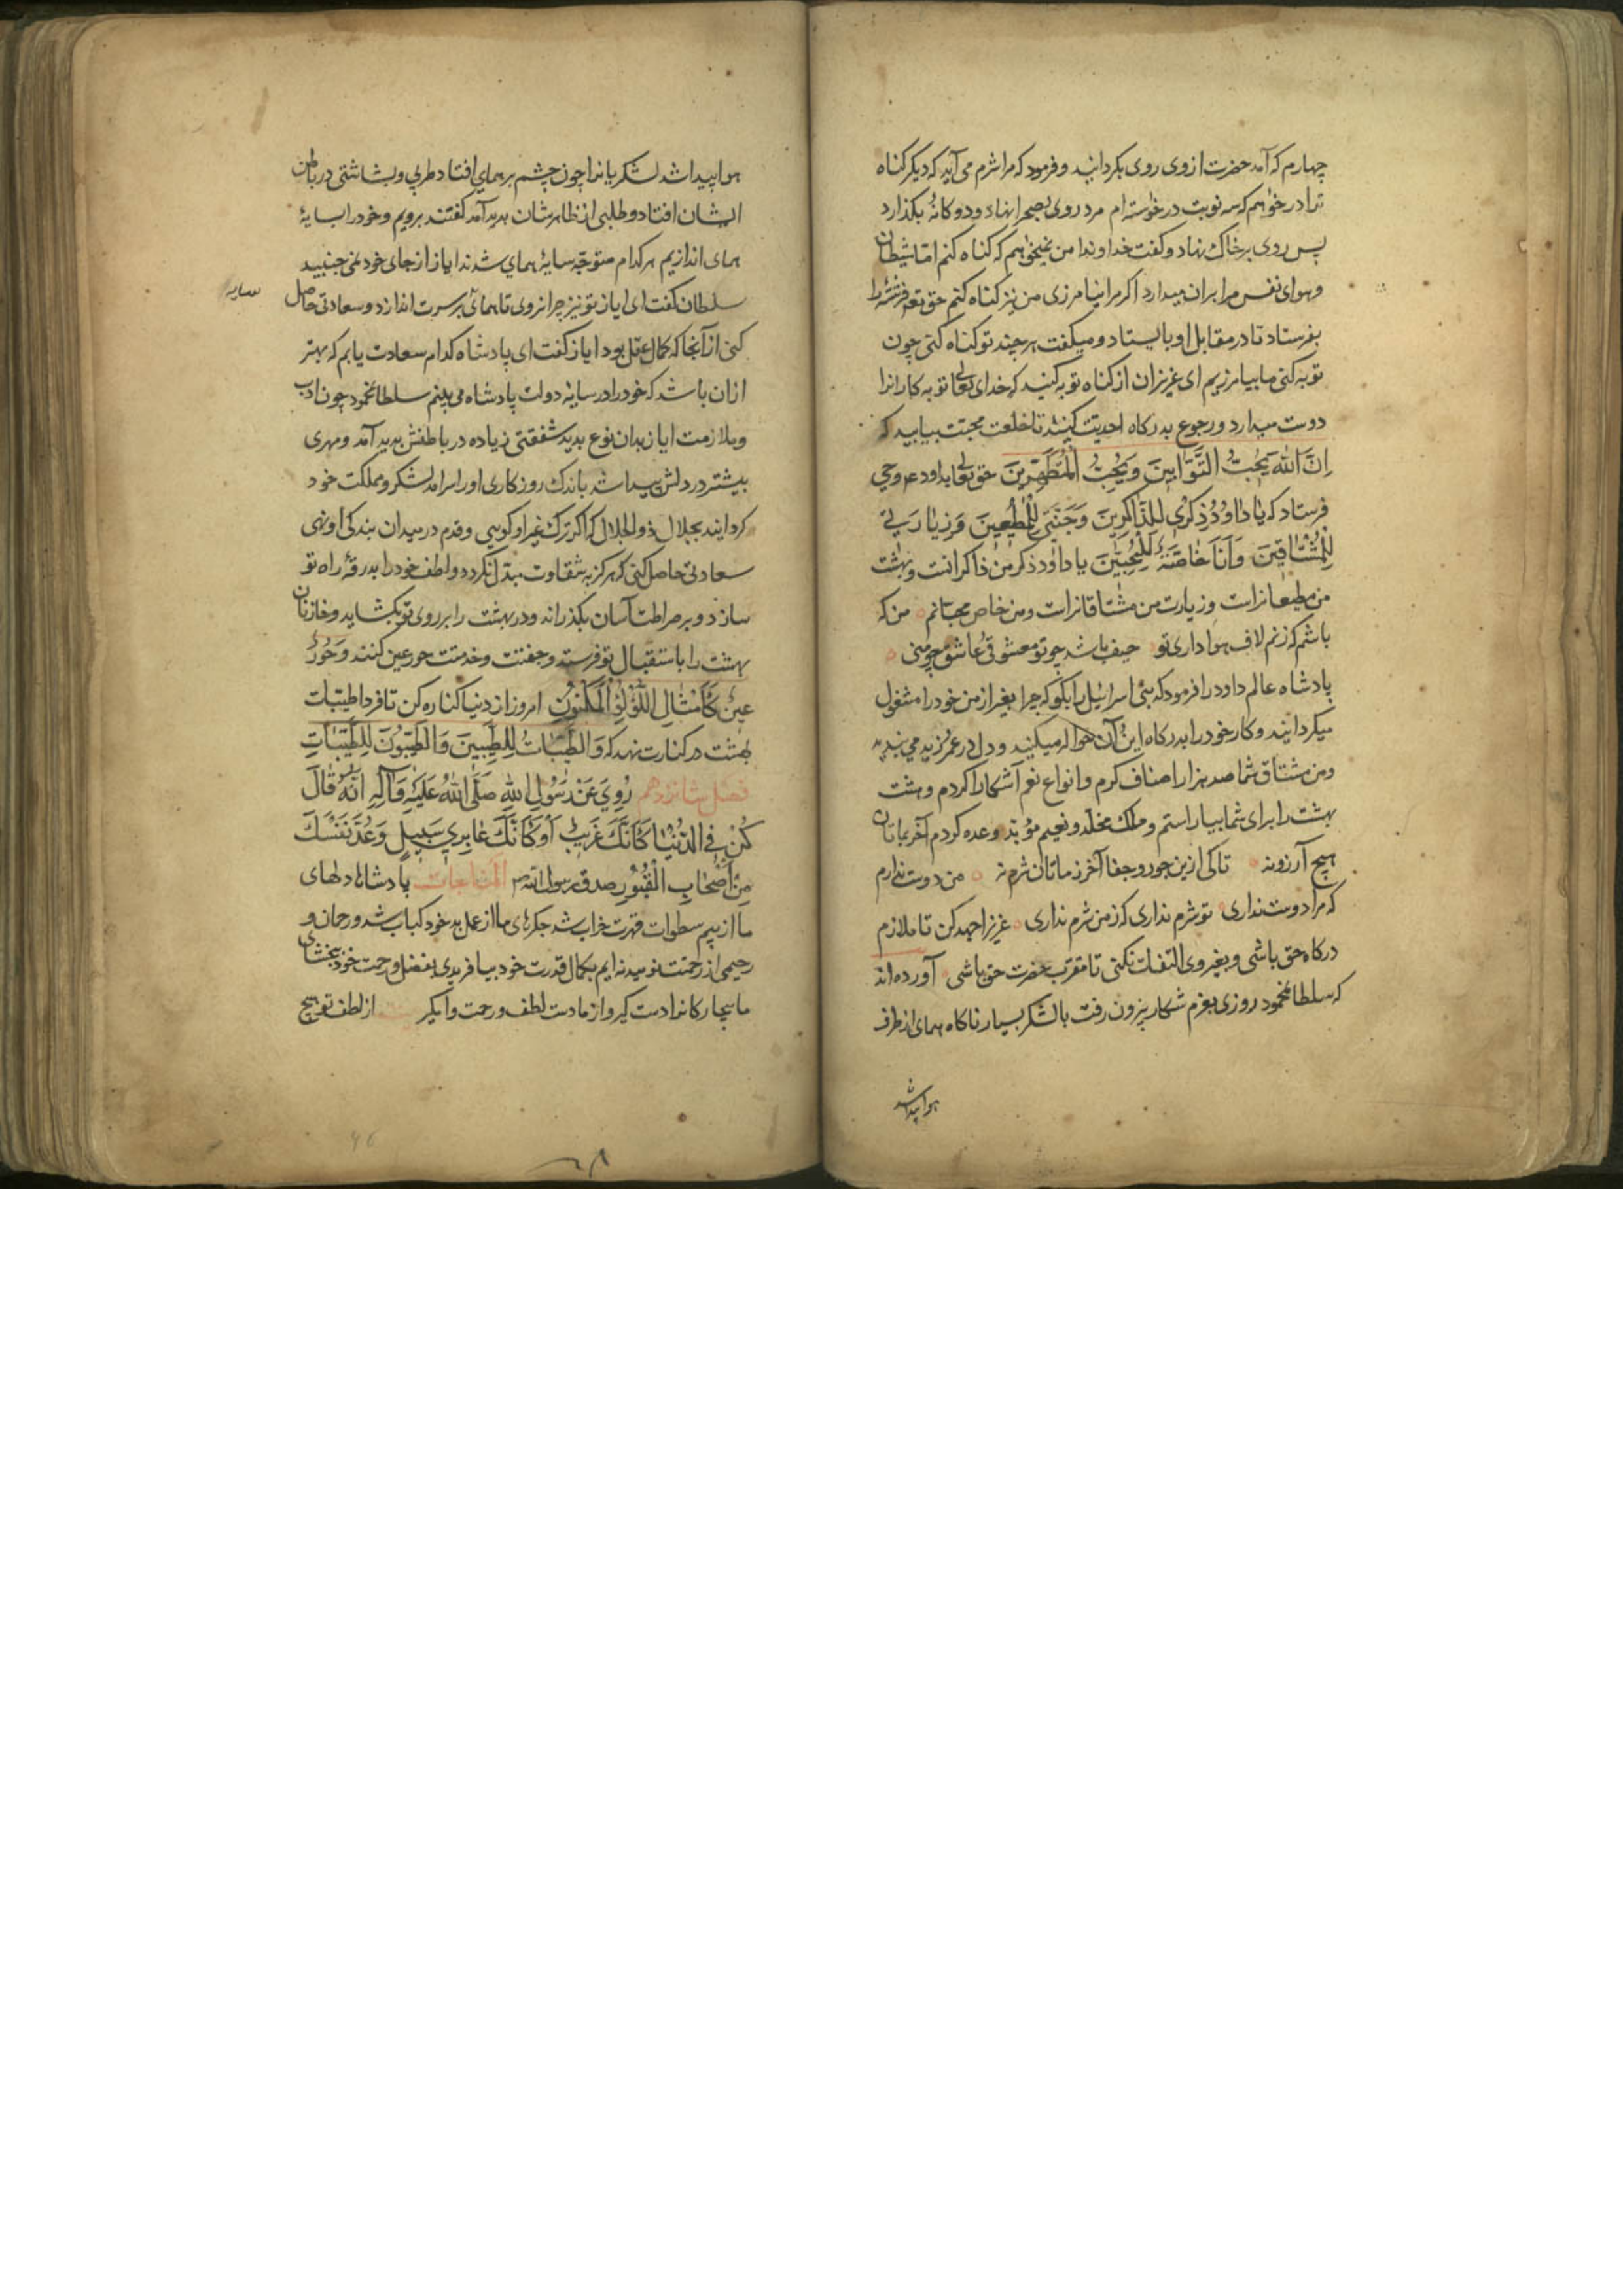 چهارم که آمد حضرت ازوی روی بکردانید و فرمود که مرا شرم می آید که دیکر کناه
ترا درخواهم که سه نوبت درخواسته ام مرد روی بصحرا نهاد و دوکانهٔ بکذارد
پس روی برخاک نهاد و کفت خداوندا من نمیخواهم که کناه کنم اما شیطان
و هوای نفس مرا بران میدارد اکر مرا نیامرزی من نیز کناه کنم حق تعه فرشتهٔ را
بفرستاد تا در مقابل او بایستاد و میکفت هر چند تو کناه کنی چون
توبه کنی ما بیامرزیم ای عزیزان از کناه توبه کنید که خدای تعالی توبه کارانرا
دوست میدارد و رجوع بدرکاه احدیت کنید تا خلعت محبت بیابید که
اِنَّ اللّٰهَ یُحِبُّ التَّوَّابِینَ وَیُحِبُّ الْمُتَطَهِّرِینَ حق تعالی بداود ع وحی
فرستاد که یَا دَاوُدُ ذِکْرِی لِلذَّاکِرِینَ وَجَنَّتِی لِلْمُطِیعِینَ وَزِیَارَتِی
لِلْمُشْتَاقِینَ وَاَنَا خَاصَّةً لِلْمُحِبِّینَ یا داود ذکر من ذاکرانست و بهشت
من مطیعانراست و زیارت من مشتاقانراست و من خاص محبانم من که
باشم که زنم لاف هواداری تو حیف باشد چو تو معشوقی و عاشق چو منی
پادشاه عالم داود را فرمود که بنی اسرائیل را بکو که چرا بغیر از من خود را مشغول
میکردانید و کار خود را بدرکاه این و آن حواله میکنید و دل در عمرو زید می بندید
و من مشتاق شما صد هزار اصناف کرم و انواع نعم آشکارا کردم و هشت
بهشت را برای شما بیاراستم و ملک مخلد و نعیم مؤبد وعده کردم آخر بماتان
هیچ آرزو نه تا کی ازین جور و جفا آخر ز ماتان شرم نه من دوست ندارم
که مرا دوست نداری تو شرم نداری که ز من شرم نداری عزیزا جهد کن تا ملازم
درکاه حق باشی و بغیر وی التفات نکنی تا مقرب حضرت حق باشی آورده اند
که سلطان محمود روزی بعزم شکار بیرون رفت با لشکر بسیار ناکاه همای از طرف
هوا پیدا شد
هوا پیدا شد لشکریانرا چون چشم بر همای افتاد طربی و بشاشتی در باطن
ایشان افتاد و طلبی از ظاهرشان پدید آمد کفتند برویم و خود را بسایهٔ
همای اندازیم هر کدام متوجه سایهٔ همای شدند ایاز از جای خود نمی جنبید
سلطان کفت ای ایاز تو نیز چرا نروی تا همای بر سرت اندازد و سعادتی حاصل
سایه
کنی از آنجا که کمال عقل بود ایاز کفت ای پادشاه کدام سعادت یابم که بهتر
ازان باشد که خود را در سایهٔ دولت پادشاه می بینم سلطان محمود چون ادب
و ملازمت ایاز بدان نوع بدید شفقتی زیاده در باطنش پدید آمد و مهری
بیشتر در دلش پیدا شد باندک روزکاری اورا سرآمد لشکر و مملکت خود
کردانید بجلال ذو الجلال که اکر ترک غیر او کویی و قدم در میدان بندکی او نهی
سعادتی حاصل کنی که هرکز به شقاوت مبدل نکردد و لطف خود را بدرقهٔ راه تو
سازد و بر صراطت آسان بکذراند و در بهشت را بر روی تو بکشاید و خازنان
بهشت را باستقبال تو فرستد و جفتت و خدمتت حور عین کنند وَحُورٌ
عِینٌ کَاَمْثَالِ اللُّؤْلُؤِ الْمَکْنُونِ امروز از دنیا کناره کن تا فردا طیبات
بهشت در کنارت نهد که وَالطَّیِّبَاتُ لِلطَّیِّبِینَ وَالطَّیِّبُونَ لِلطَّیِّبَاتِ
فصل شانزدهم رُوِیَ عَنْ رَسُولِ اللهِ صَلَّی اللهُ عَلَیْهِ وَآلِهِ اَنَّهُ قَالَ
کُنْ فِی الدُّنْیَا کَاَنَّکَ غَرِیبٌ اَوْ کَاَنَّکَ عَابِرِی سَبِیلٍ وَعُدَّ نَفْسَکَ
مِنْ اَصْحَابِ الْقُبُورِ صدق رسول الله ص المناجات پادشاها دلهای
ما از بیم سطوات قهرت خراب شد جکرهای ما از عمل بد خود کباب شد و رحمان و
رحیمی از رحمتت نومید نه ایم بکمال قدرت خود بیافریدی بفضل و رحمت خود ببخشای
ما بیچارکانرا دست کیر و از ما دست لطف و رحمت وامکیر از لطف تو هیچ